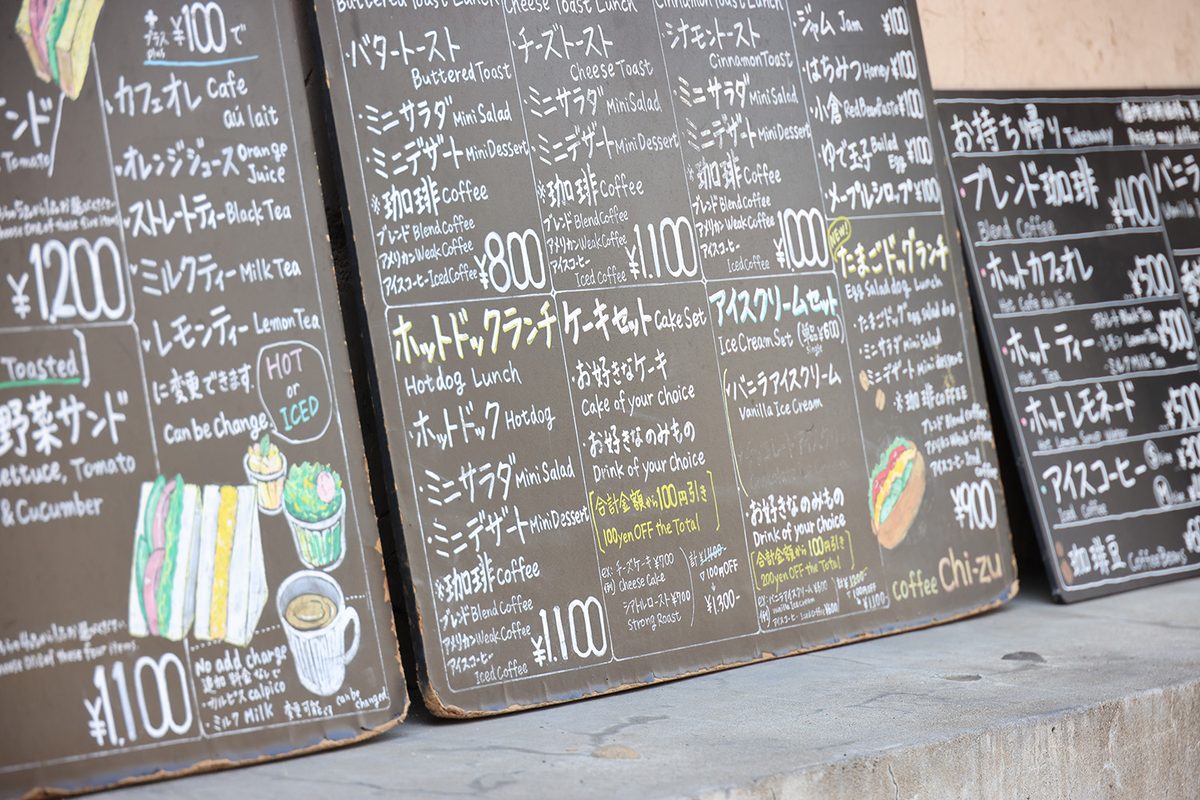 ンド
Tomato
¥1200
Toasted
野菜サンド
Lettuce, Tomato
& Cucumber
Choose One of these four items.
¥1,100
プラス
plus
¥100で
カフェオレ Cafe
au lait
オレンジジュース Orange
Juice
ストレートティー Black Tea
ミルクティー Milk Tea
レモンティー Lemon Tea
に変更できます.
Can be change
HOT
or
ICED
No add charge
追加料金なしで
・カルピス calpico
・ミルク Milk
変更可能です
can be
changed
Buttered Toast Lunch
・バタートースト
Buttered Toast
・ミニサラダ Mini Salad
・ミニデザート Mini Dessert
※珈琲 Coffee
ブレンド Blend Coffee
アメリカン Weak Coffee
アイスコーヒー Iced Coffee
¥800
Cheese Toast Lunch
・チーズトースト
Cheese Toast
・ミニサラダ Mini Salad
・ミニデザート Mini Dessert
※珈琲 Coffee
ブレンド Blend Coffee
アメリカン Weak Coffee
アイスコーヒー
Iced Coffee
¥1,100
Cinnamon Toast Lunch
・シナモントースト
Cinnamon Toast
・ミニサラダ Mini Salad
・ミニデザート Mini Dessert
※珈琲 Coffee
ブレンド Blend Coffee
アメリカン Weak Coffee
アイスコーヒー
Iced Coffee
¥1000
・ジャム Jam ¥100
・はちみつ Honey ¥100
・小倉 Red Bean Paste ¥100
・ゆで玉子 Boiled
Egg ¥100
・メープルシロップ ¥100
ホットドックランチ
Hotdog Lunch
・ホットドック Hotdog
・ミニサラダ Mini Salad
・ミニデザート Mini Dessert
※珈琲 Coffee
ブレンド Blend Coffee
アメリカン Weak Coffee
アイスコーヒー
Iced Coffee
¥1,100
ケーキセット Cake Set
・お好きなケーキ
Cake of your choice
・お好きなのみもの
Drink of your choice
[合計金額から100円引き
100yen OFF the Total]
ex:
例)
チーズケーキ ¥700
Cheese Cake
ストロングロースト ¥700
Strong Roast
計 ¥1400-
¥100 OFF
¥1,300-
アイスクリームセット
Ice Cream Set (単品 ¥600)
Single
・バニラアイスクリーム
Vanilla Ice Cream
お好きなのみもの
Drink of your choice
[合計金額から100円引き
200yen OFF the Total]
NEW!
たまごドッグランチ
Egg Salad dog Lunch
・たまごドッグ egg salad dog
・ミニサラダ mini salad
・ミニデザート Mini dessert
※珈琲 coffee
ブレンド Blend coffee
アメリカン Weak coffee
アイスコーヒー Iced
Coffee
¥900
coffee chi-zu
お持ち帰り Takeaway
ブレンド珈琲 ¥400
Blend Coffee
ホットカフェオレ ¥500
Hot Cafe Au Lait
ホットティー ¥500
Hot Tea
ストレート Black Tea
レモン Lemon Tea
ミルク Milk Tea
ホットレモネード
アイスコーヒー
Iced Coffee
珈琲豆 Coffee Bean
バニラ